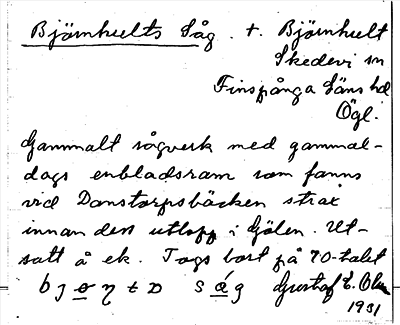 Björnhults Såg . t. Björnhult
Skedevi sn
Finspånga Läns hd
Ögl.
Gammalt sågverk med gammal-
dags enbladsram som fanns
vid Danstorpsbäcken strax
innan dess utlopp i Gölen. Ut-
satt å ek. Togs bort på 70-talet
såg Gustaf E.
1931